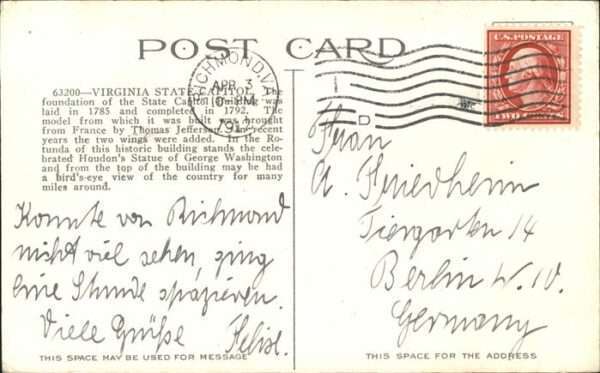 POST CARD
RICHMOND, VA.
APR 3
U.S. POSTAGE
TWO
63200—VIRGINIA STATE CAPITOL. The
foundation of the State Capitol Building was
laid in 1785 and completed in 1792. The
model from which it was built was brought
from France by Thomas Jefferson. In recent
years the two wings were added. In the Ro-
tunda of this historic building stands the cele-
brated Houdon's Statue of George Washington
and from the top of the building may be had
a bird's-eye view of the country for many
miles around.
Konnte von Richmond
nicht viel sehen, ging
eine Stunde spazieren.
Viele Grüße Felix.
THIS SPACE MAY BE USED FOR MESSAGE
Frau
A. Friedheim
Tiergarten 14
Berlin N.W.
Germany
THIS SPACE FOR THE ADDRESS